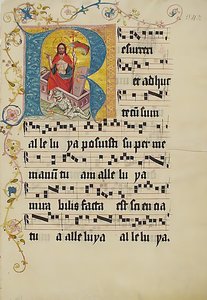 R esurrexi
et adhuc
tecũ sum
alle lu ya posuisti su per me
manũ tu am alle lu ya
mira bilis facta est sci en cia
tu a alle luya al le lu ya.